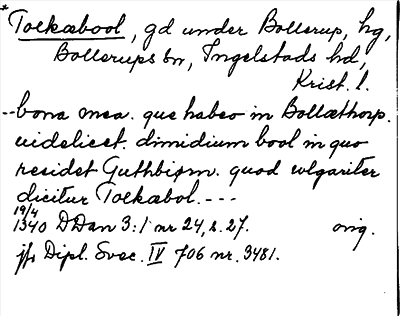 * Tolkæbool, gd under Bollerup, hg,
Bollerups sn, Ingelstads hd,
Krist. l.
--bona mea. que habeo in Bollæthorp.
uidelicet. dimidium bool in quo
residet Guthbiørn. quod wlgariter
dicitur Tolkæbol. ---
19/4
1340 DDan 3:1 nr 24, s. 27. orig.
jfr Dipl. Svec. IV 706 nr. 3481.